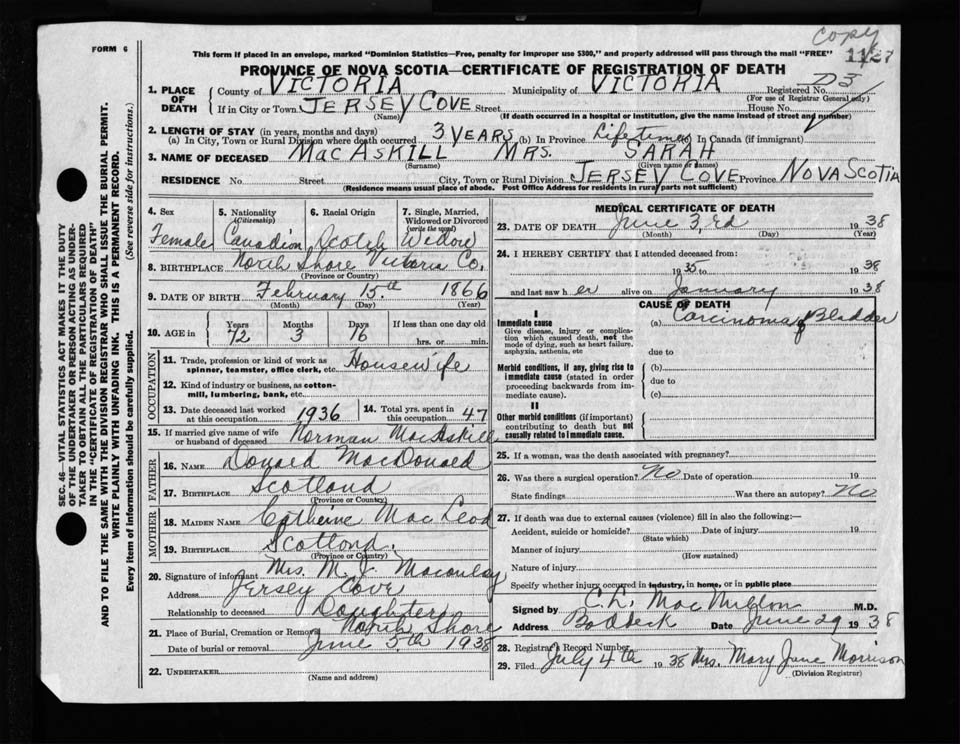 Copy
FORM 6
This form if placed in an envelope, marked "Dominion Statistics—Free, penalty for improper use $300," and properly addressed will pass through the mail "FREE"
1127
PROVINCE OF NOVA SCOTIA—CERTIFICATE OF REGISTRATION OF DEATH
1. PLACE OF DEATH County of VICTORIA Municipality of VICTORIA Registered No. D3
(For use of Registrar General only)
If in City or Town JERSEY COVE Street House No.
(Name) (If death occurred in a hospital or institution, give the name instead of street and number)
2. LENGTH OF STAY (in years, months and days)
(a) In City, Town or Rural Division where death occurred 3 YEARS (b) In Province Lifetime In Canada (if immigrant)
3. NAME OF DECEASED MacASKILL MRS. SARAH
(Surname) (Given name or names)
RESIDENCE No. Street City, Town or Rural Division JERSEY COVE Province NOVA SCOTIA
(Residence means usual place of abode. Post Office Address for residents in rural parts not sufficient)
4. Sex 5. Nationality (Citizenship) 6. Racial Origin 7. Single, Married, Widowed or Divorced (write the word)
Female Canadian Scotch Widow
8. BIRTHPLACE North Shore Victoria Co.
(Province or Country)
9. DATE OF BIRTH February 15th 1866
(Month) (Day) (Year)
10. AGE in Years Months Days If less than one day old
72 3 16 hrs. or min.
OCCUPATION
11. Trade, profession or kind of work as spinner, teamster, office clerk, etc. Housewife
12. Kind of industry or business, as cotton-mill, lumbering, bank, etc.
13. Date deceased last worked at this occupation 1936 14. Total yrs. spent in this occupation 47
15. If married give name of wife or husband of deceased Norman MacAskill
FATHER
16. NAME Donald MacDonald
17. BIRTHPLACE Scotland
(Province or Country)
MOTHER
18. MAIDEN NAME Catherine MacLeod
19. BIRTHPLACE Scotland.
(Province or Country)
20. Signature of informant Mrs. M. J. Macaulay
Address Jersey Cove
Relationship to deceased Daughter
21. Place of Burial, Cremation or Removal North Shore
Date of burial or removal June 5th 1938
22. UNDERTAKER
(Name and address)
MEDICAL CERTIFICATE OF DEATH
23. DATE OF DEATH June 3rd 1938
(Month) (Day) (Year)
24. I HEREBY CERTIFY that I attended deceased from:
1935 to 1938
and last saw her alive on January 1938
CAUSE OF DEATH
I
Immediate cause (a) Carcinoma of Bladder
Give disease, injury or complication which caused death, not the mode of dying, such as heart failure, asphyxia, asthenia, etc due to
Morbid conditions, if any, giving rise to immediate cause (stated in order proceeding backwards from immediate cause). (b)
due to
(c)
II
Other morbid conditions (if important) contributing to death but not causally related to immediate cause.
25. If a woman, was the death associated with pregnancy?
26. Was there a surgical operation? No Date of operation 19
State findings Was there an autopsy? No
27. If death was due to external causes (violence) fill in also the following:—
Accident, suicide or homicide? Date of injury 19
(State which)
Manner of injury
(How sustained)
Nature of injury
Specify whether injury occurred in industry, in home, or in public place
Signed by C. L. MacMillan M.D.
Address Baddeck Date June 29 1938
28. Registrar's Record Number
29. Filed July 4th 1938 Mrs. Mary Jane Morrison
(Division Registrar)
SEC. 46—VITAL STATISTICS ACT MAKES IT THE DUTY
OF THE UNDERTAKER OR PERSON ACTING AS UNDER-
TAKER TO OBTAIN ALL THE PARTICULARS REQUIRED
IN THE "CERTIFICATE OF REGISTRATION OF DEATH"
AND TO FILE THE SAME WITH THE DIVISION REGISTRAR WHO SHALL ISSUE THE BURIAL PERMIT.
WRITE PLAINLY WITH UNFADING INK. THIS IS A PERMANENT RECORD.
Every item of information should be carefully supplied. (See reverse side for instructions.)